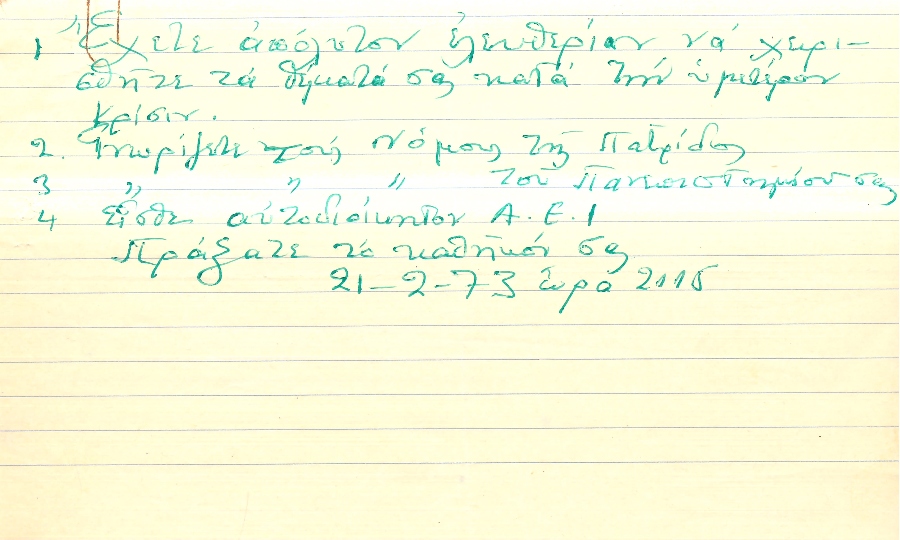 1 Ἔχετε ἀπόλυτον ἐλευθερίαν νά χειρι-
σθῆτε τά θέματά σας κατά τήν ὑμετέραν
κρίσιν.
2. Γνωρίζετε τούς νόμους τῆς Πατρίδος
3 〃 〃 〃 τοῦ Πανεπιστημίου σας
4 Εἶσθε αὐτοδιοίκητον Α.Ε.Ι
Πράξατε τό καθῆκόν σας
21-2-73 ὥρα 2115